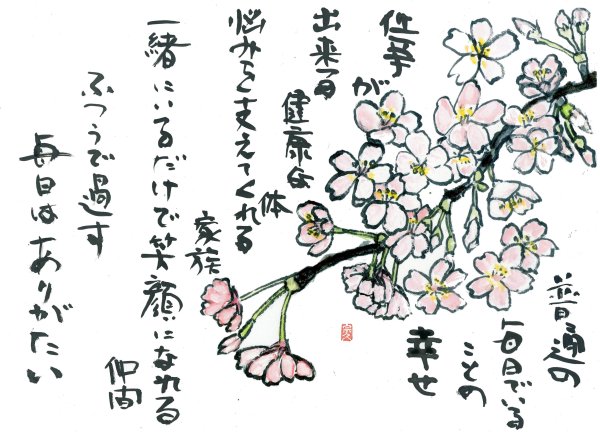 普通の
毎日でいる
ことの
幸せ
仕事が
出来る
健康な
体
悩みを支えてくれる
家族
一緒にいるだけで笑顔になれる
仲間
ふつうで過す
毎日はありがたい